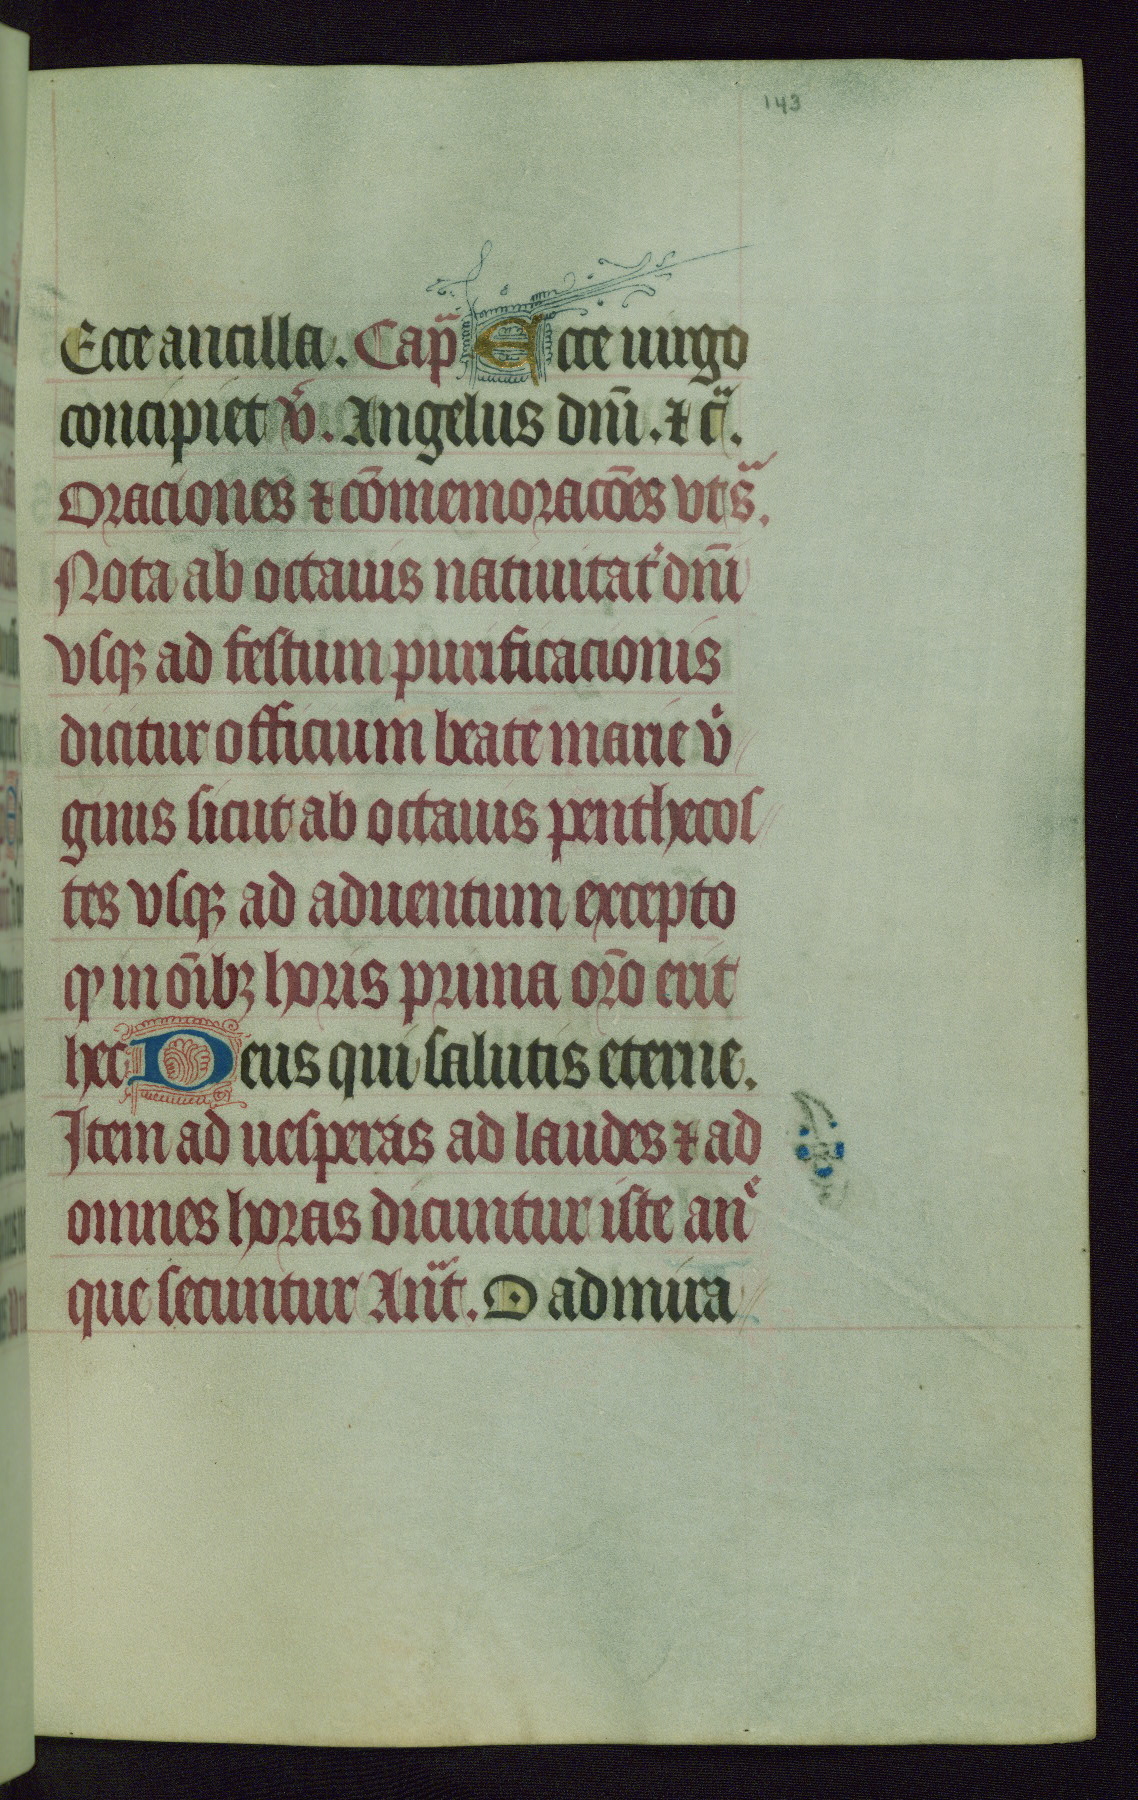 143
Ecce ancilla. Cap̃ Ecce uirgo
concipiet v̊. Angelus dñi. ⁊ c̃.
Oraciones ⁊ cõmemoracões vt s̃.
Nota ab octauis natiuitat' dñi
vsqꝫ ad festum purificacionis
dicitur officium beate marie v̊
ginis sicut ab octauis penthecos
tes vsqꝫ ad aduentum excepto
ꝙ in oĩbꝫ horis prima orõ erit
hec Deus qui salutis eterne.
Item ad uesperas ad laudes ⁊ ad
omnes horas dicuntur iste anᵉ
que secuntur Añt. O admira